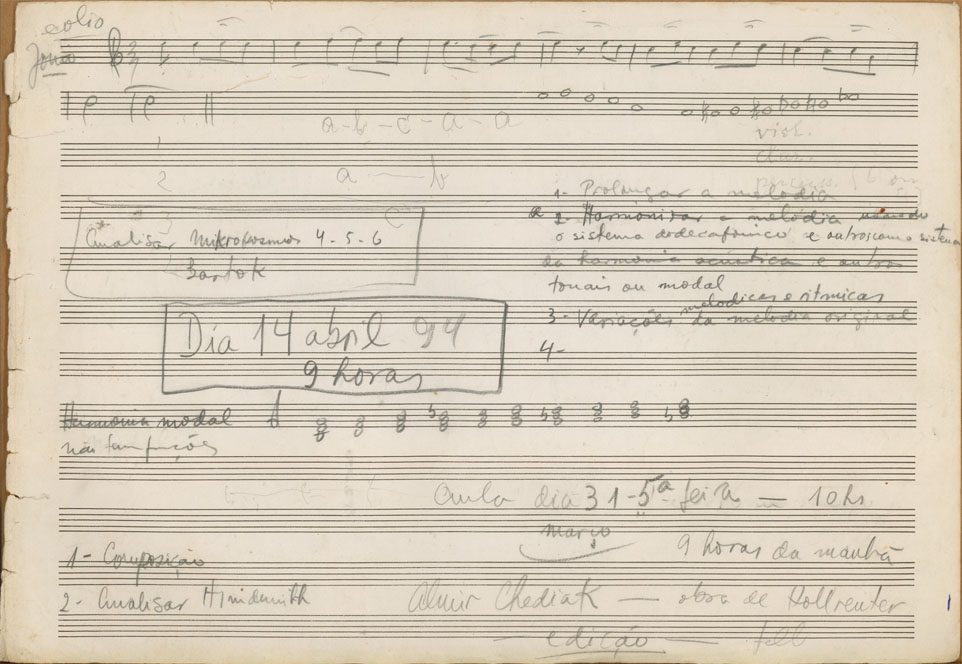 eolio
Jonio
a - b - c - a - a
1
2
a — b
viol.
clar.
1- Prolongar a melodia
2- Harmonizar a melódia usando
o sistema dodecafonico e outros com o sistema
da harmonia acustica e outra
tonais ou modal
melodicas e ritmicas
3- Variações da melodia original
4-
Analisar Mikrokosmos 4-5-6
Bartok
Dia 14 abril 94
9 horas
Harmonia modal
não tem funções
Aula dia 31 - 5ª feira — 10 hs
março
9 horas da manhã
1- Composição
2- Analisar Hindemith
Almir Chediak — obra de Kollreuter
edição —